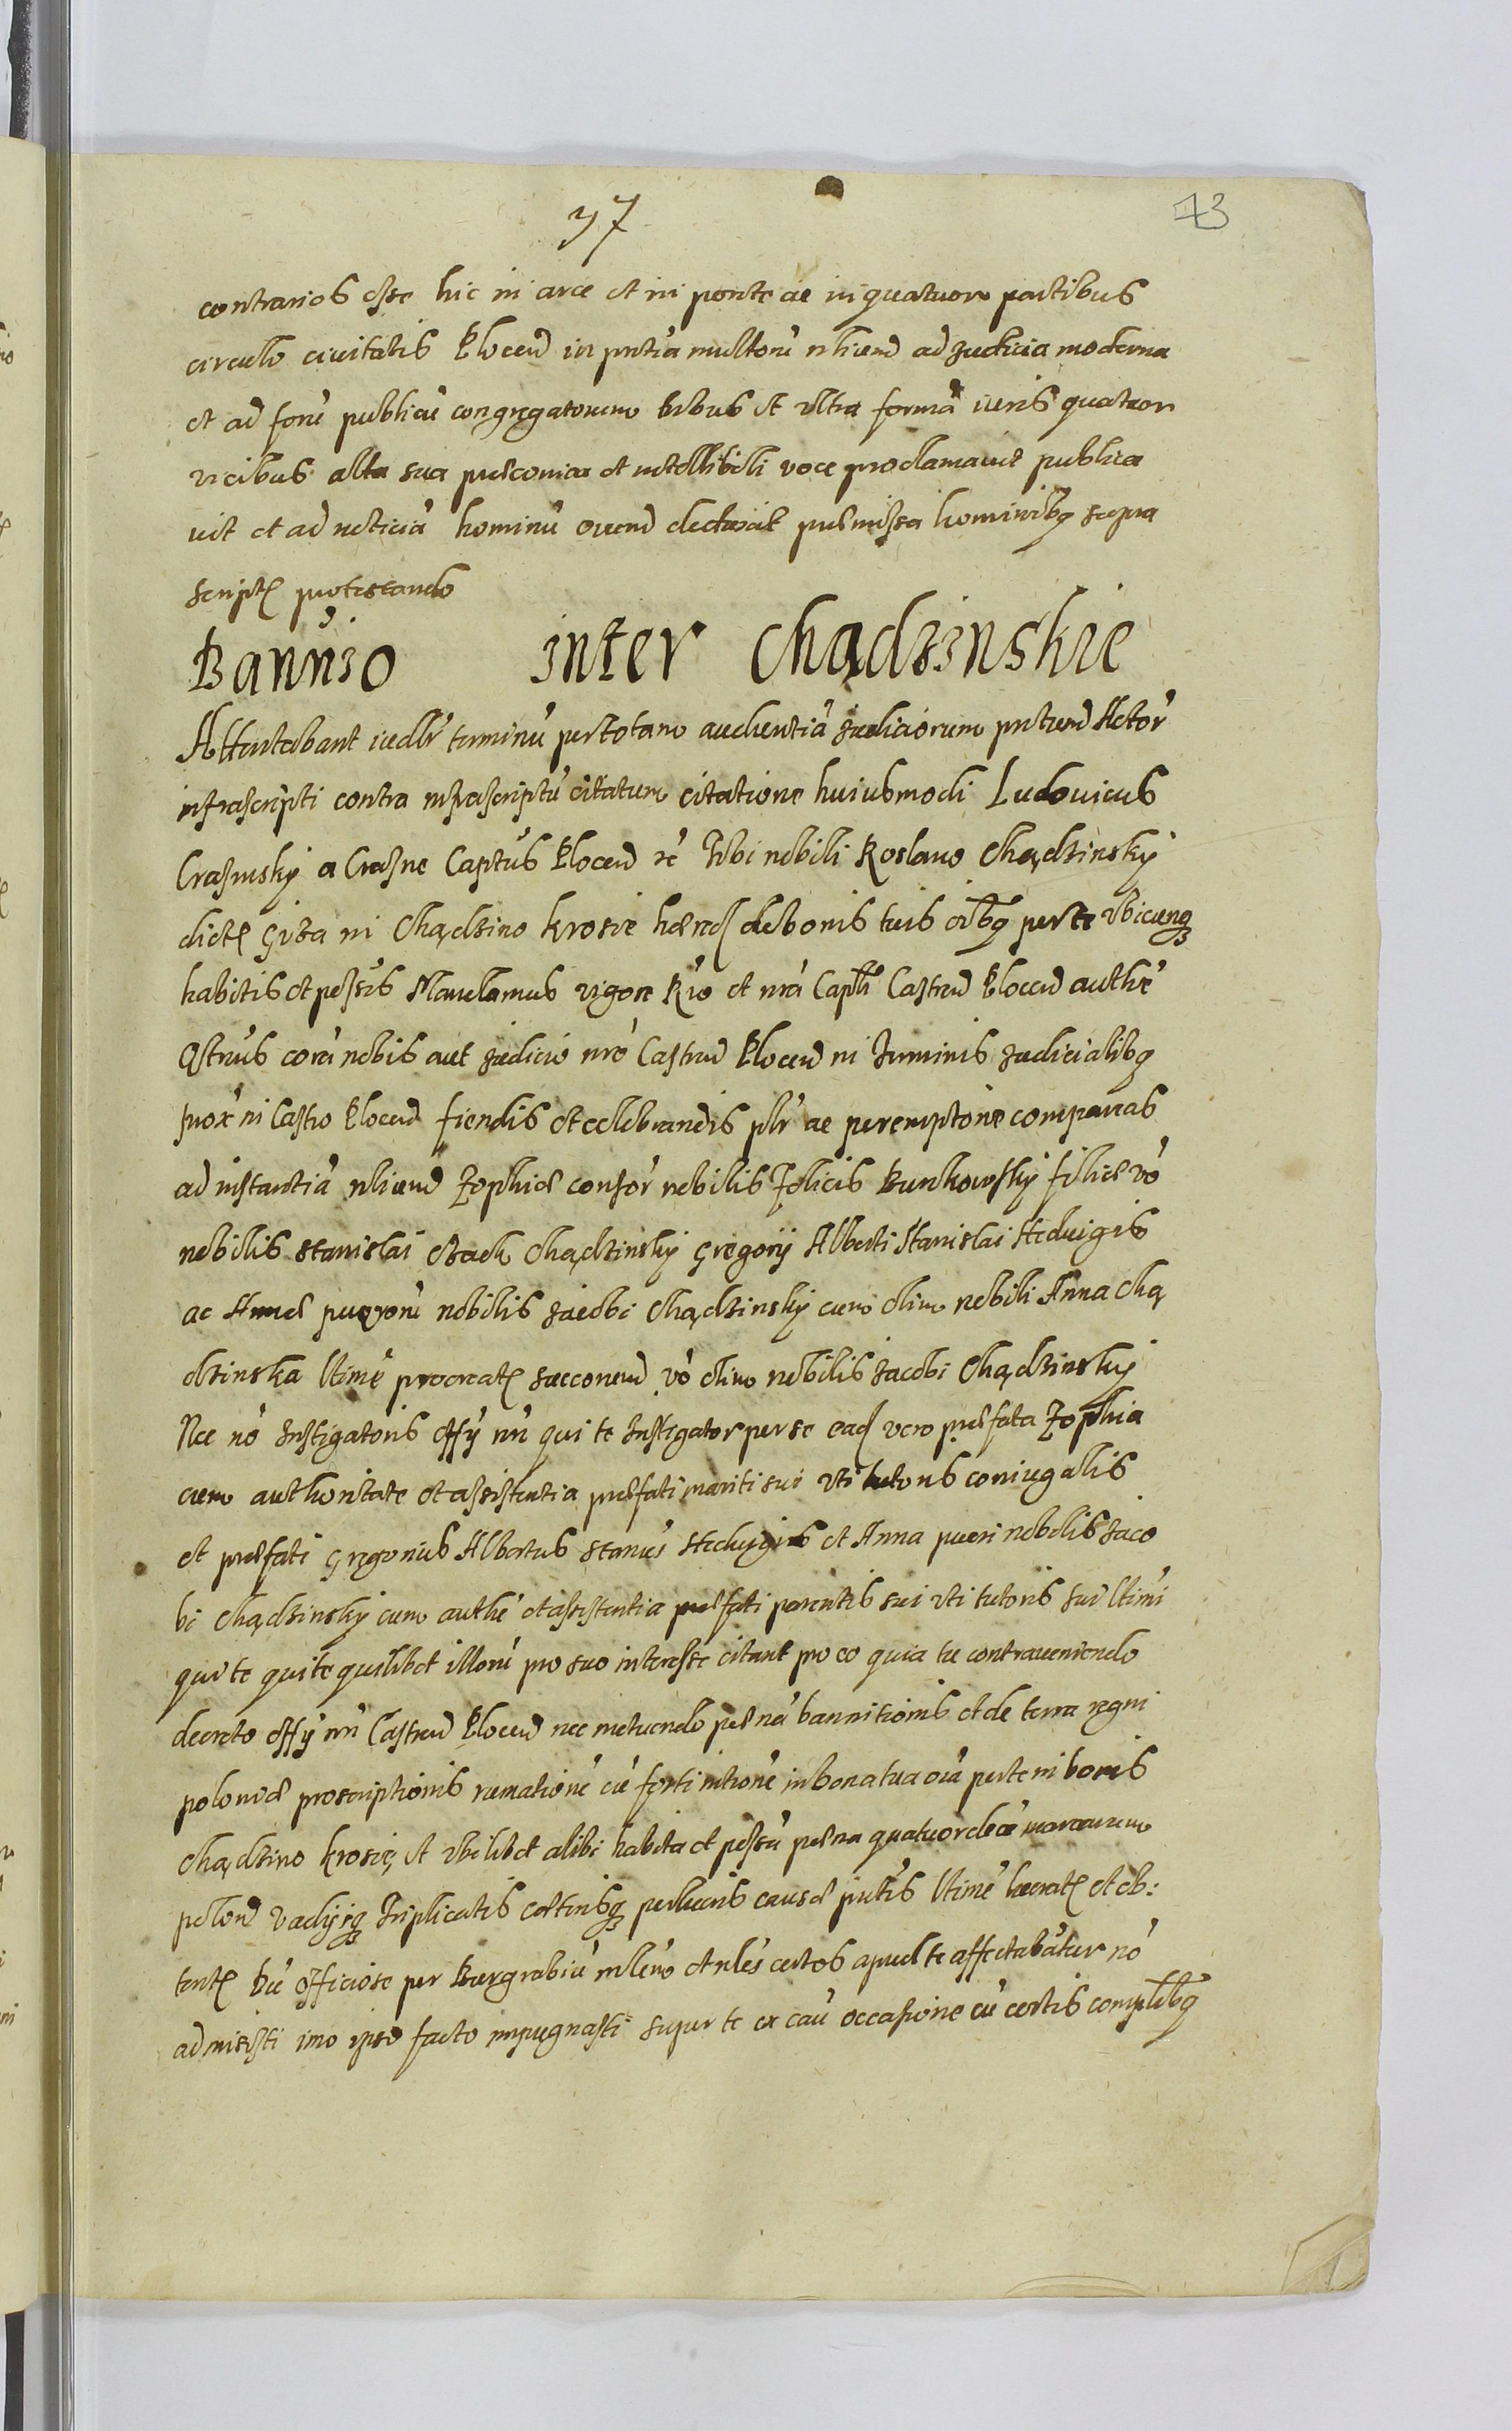 37
43
contrarios esse hic in arce et in ponte ac in quatuor partibus
circulo ciuitatis Plocen in pntia multorũ nliund ad Judicia moderna
et ad forũ publicũ congregatorum tribus et vltra formã iuris quatuor
vicibus alta sua præconica et intelligibili voce proclamauit publica
uit et ad noticiã hominũ ouend deduxit præmissa hominibq supra
script protestando
Banñio inter Chądzinskie
Attentabant iudlr terminũ per totam audientiã Judiciorum pntiund Actor
infrascripti contra infrascriptũ citatum citatione huiusmodi Ludouicus
Crasinskỹ a Crasne Captus Plocen rc Tibi nobili Roslauo Chądzinskỹ
dict Giza in Chądzino krosie hæred de bonis tuis oĩbq per te vbicunq
habitis et possis Mandamus vigore Rio et nrã Capli Castren Plocen authe
Qtnus corã nobis aut Judicio nro Castren Plocen in Terminis Judicialibq
prox in Castro Plocen fiendis et celebrandis plr ac peremptorie compareas
ad instantiã nliund Zophiæ consor nobilis Felicis Bunkowskỹ filiæ vo
nobilis Stanislai Czach Chądzinskỹ Gregorij Alberti Stanislai Heduigis
ac Annæ puerorũ nobilis Jacobi Chądzinskỹ cum olim nobili Anna Chą
dzinska ltime procreat succonend vo olim nobilis Jacobi Chądzinskỹ
Nec no Instigatoris offỹ nri qui te Instigator per se ead vero præfata Zophia
cum authoritate et assistentia præfati mariti sui vti tutoris coniugalis
et præfati Gregorius Albertus Stanus Heduigis et Anna pueri nobilis Jaco
bi Chądzinskỹ cum authe et assistentia præfati parentis sui vti tutoris sui ltimi
qui te qui te quilibet illorũ pro suo interesse citant pro eo quia tu contraueniendo
decreto offỹ nri Castren Plocen nec metuendo pænã bannitionis et de terra regni
poloniæ proscriptionis rumationẽ cũ forti intionẽ in bona tua oĩa per te in bonis
Chądzino krosie, et vbilibet alibi habita et possa pæna quatuordecẽ marcarum
polon vadijsq Triplicatis cæterisq perlucris causæ pntis ltime lucrat et ob:
tent hũ officiose per Burgrabiũ nlem et nles certos apud te affectabãtur no
admisisti imo ipso facto impugnasti super te ex cau occasione cũ certis complibq